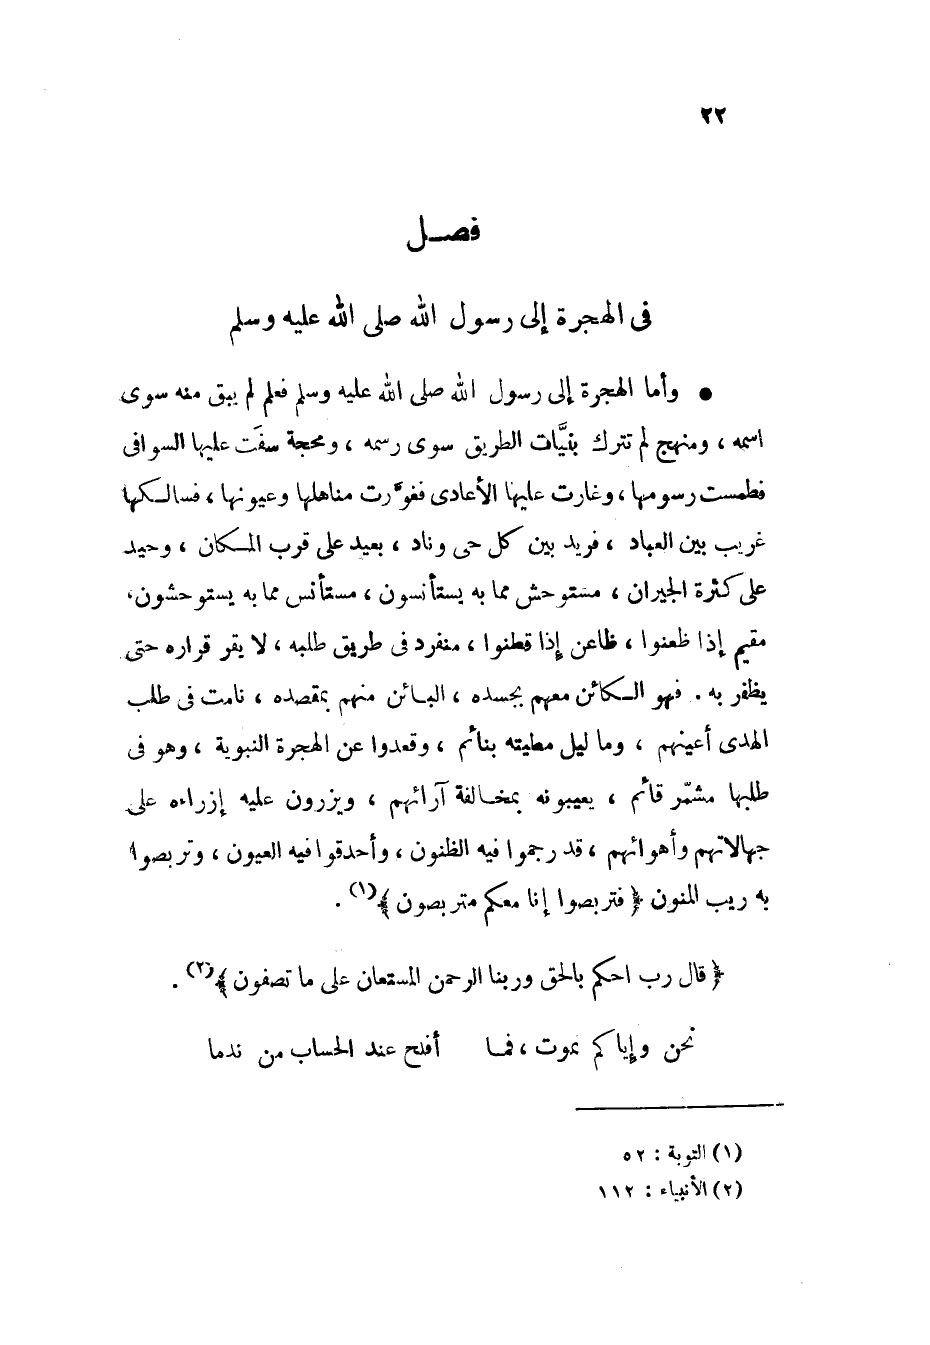 ٢٢
فصـل
فى الهجرة إلى رسول الله صلى الله عليه وسلم
● وأما الهجرة إلى رسول الله صلى الله عليه وسلم فعلم لم يبق منه سوى
اسمه ، ومنهج لم تترك بنيَّات الطريق سوى رسمه ، ومحجة سفَت عليها السوافى
فطمست رسومها ، وغارت عليها الأعادى فغوَّرت مناهلها وعيونها ، فسالـكها
غريب بين العباد ، فريد بين كل حى وناد ، بعيد على قرب المـكان ، وحيد
على كثرة الجيران ، مستوحش مما به يستأنسون ، مستأنس مما به يستوحشون ،
مقيم إذا ظعنوا ، ظاعن إذا قطنوا ، منفرد فى طريق طلبه ، لا يقر قراره حتى
يظفر به . فهو الـكائن معهم بجسده ، البـائن منهم بمقصده ، نامت فى طلب
الهدى أعينهم ، وما ليل مطيته بنائم ، وقعدوا عن الهجرة النبوية ، وهو فى
طلبها مشمّر قائم ، يعيبونه بمخـالفة آرائهم ، ويزرون عليه إزراءه على
جهالاتهم وأهوائهم ، قد رجموا فيه الظنون ، وأحدقوا فيه العيون ، وتربصوا
به ريب المنون ﴿ فتربصوا إنا معكم متربصون ﴾(١) .
﴿ قال رب احكم بالحق وربنا الرحمن المستعان على ما تصفون ﴾(٢) .
نحن وإياكم نموت ، فمـا أفلح عند الحساب من ندما
(١) التوبة : ٥٢
(٢) الأنبياء : ١١٢